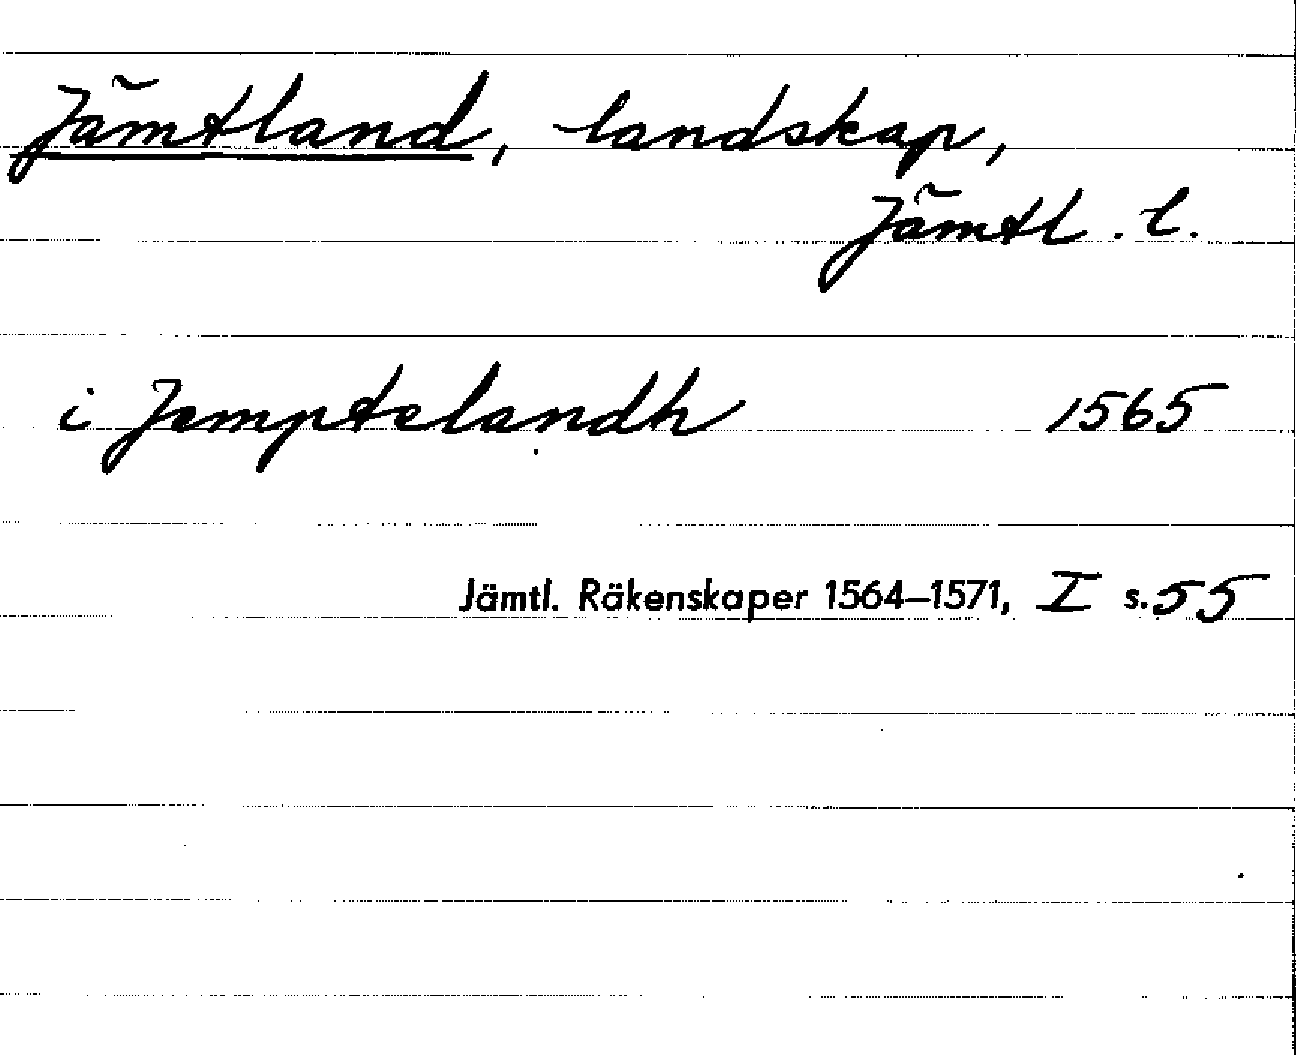 Jämtland, landskap,
Jämtl. l.
i Jemptelandh 1565
Jämtl. Räkenskaper 1564–1571, I s. 55